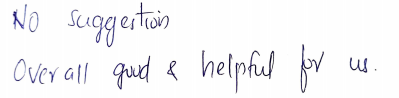 No suggestion
Overall good & helpful for us.